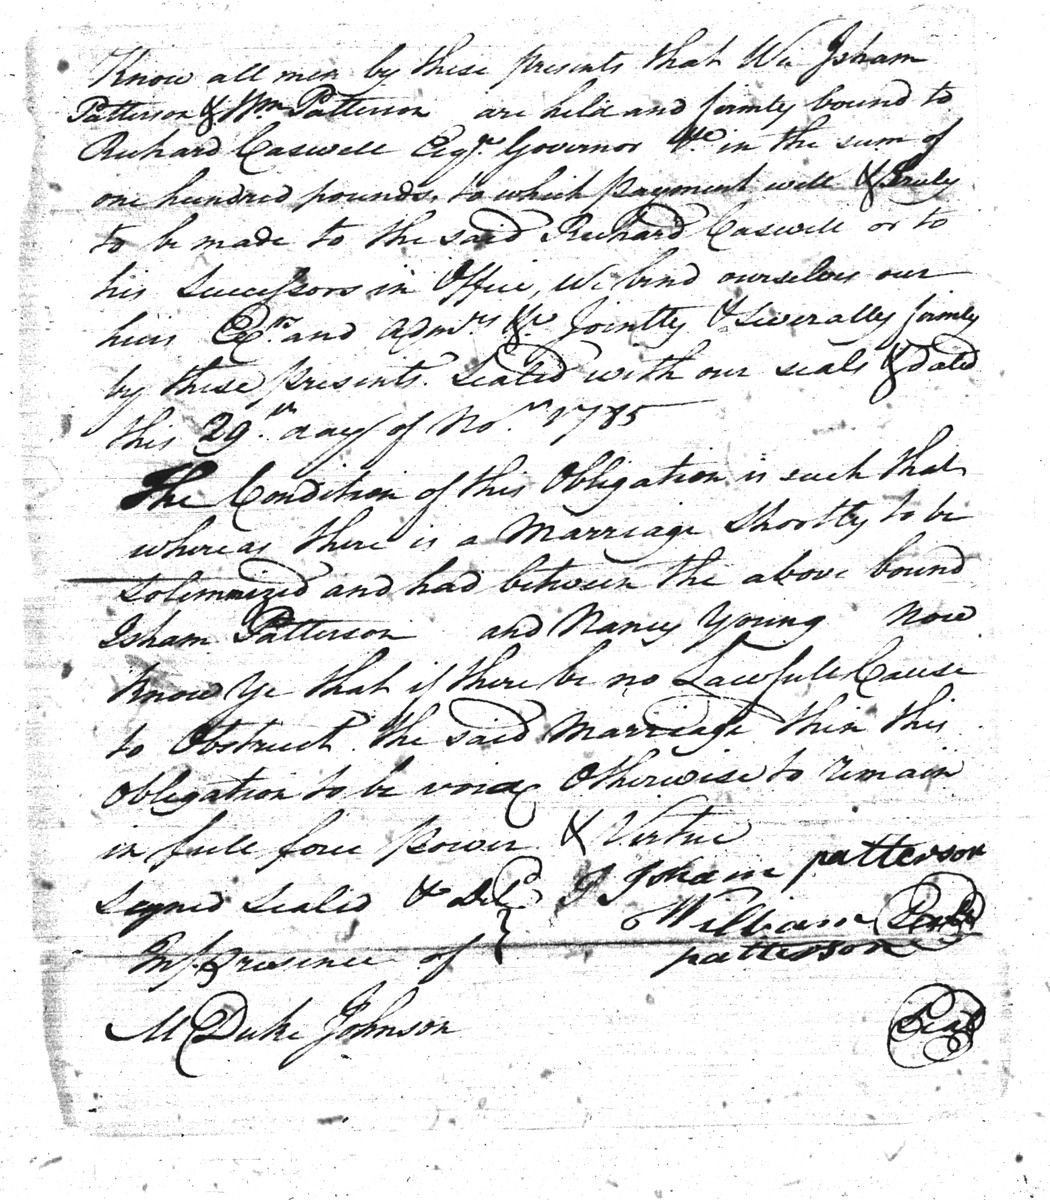 Know all men by these presents that We Isham
Patterson & Wm Patterson are held and firmly bound to
Richard Caswell Esqr. Governor &c. in the sum of
one hundred pounds, to which payment well & truly
to be made to the said Richard Caswell or to
his Successors in Office, We bind ourselves our
heirs Exrs. and Admrs &c Jointly & Severally firmly
by these presents. Sealed with our seals & dated
this 29th. day of Novr. 1785
The Condition of this Obligation is such that
whereas there is a Marriage Shortly to be
Solemnized and had between the above bound
Isham Patterson and Nancy Young Now
Know Ye that if there be no Lawfull Cause
to Obstruct the said Marriage then this
Obligation to be void Otherwise to remain
in full force power & Virtue
Signed Sealed & Deld Isham patterson
William Seal
In presence of patterson
M Duke Johnson Seal